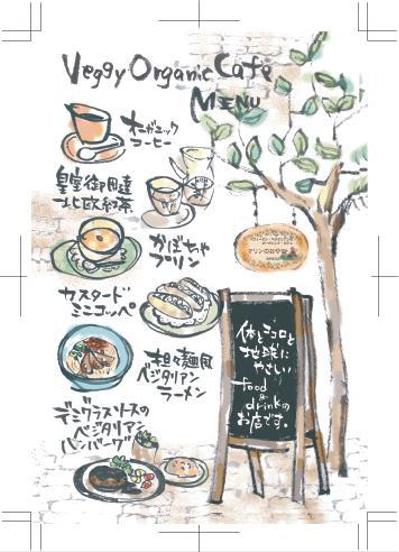 Veggy Organic Cafe
MENU
オーガニック
コーヒー
皇室御用達
北欧紅茶
かぼちゃ
プリン
カスタード
ミニコッペ
坦々麺風
ベジタリアン
ラーメン
デミグラスソースの
ベジタリアン
ハンバーグ
マリンのおやつ
体とココロと
地球に
やさしい
food
&
drinkの
お店です。